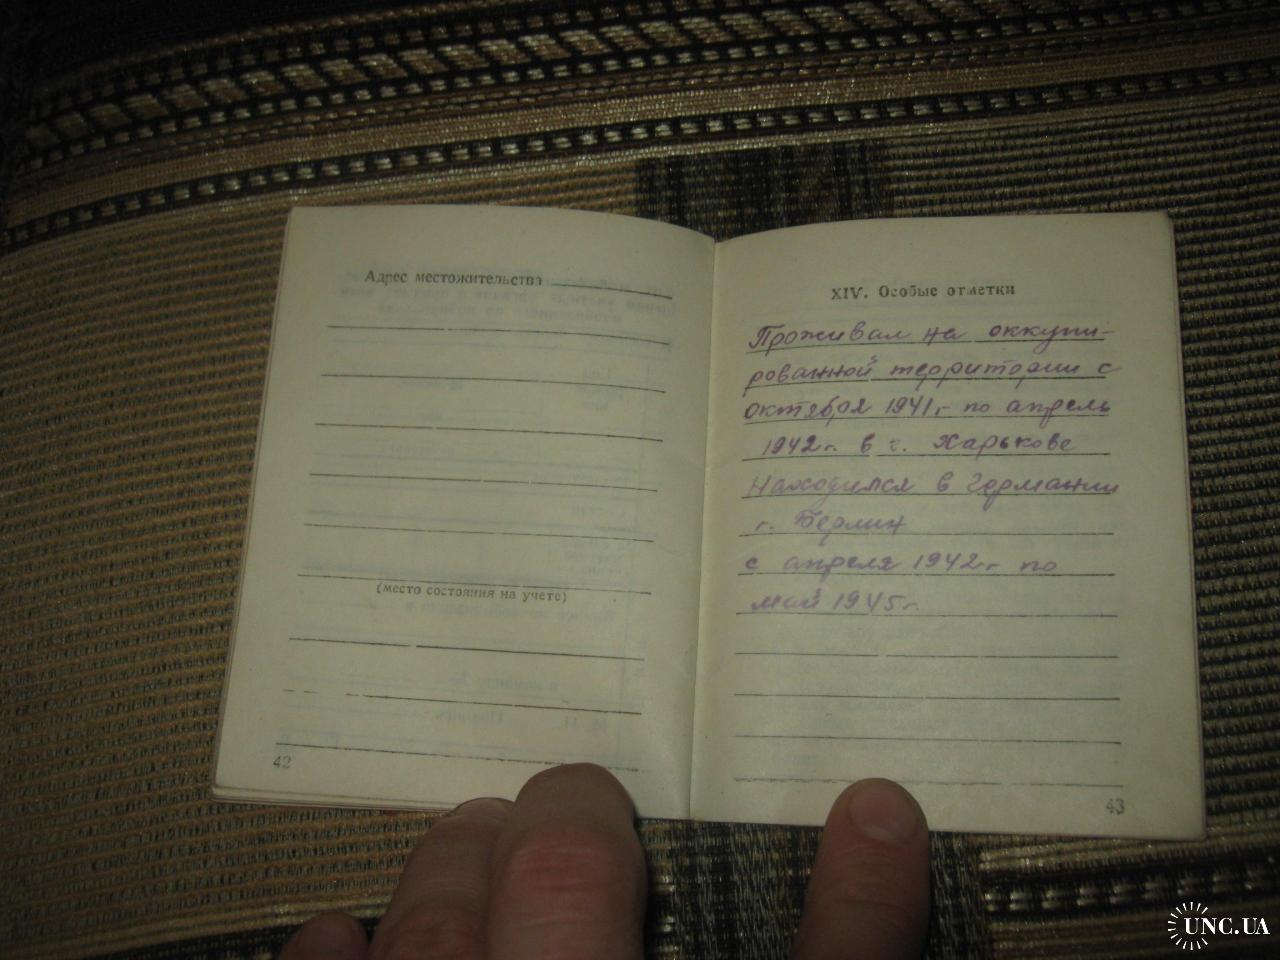 Адрес местожительства
(место состояния на учете)
42
XIV. Особые отметки
Проживал на оккупи-
рованной территории с
октября 1941г по апрель
1942г. в г. Харькове
Находился в Германии
г. Берлин
с апреля 1942г по
май 1945г.
43
UNC.UA